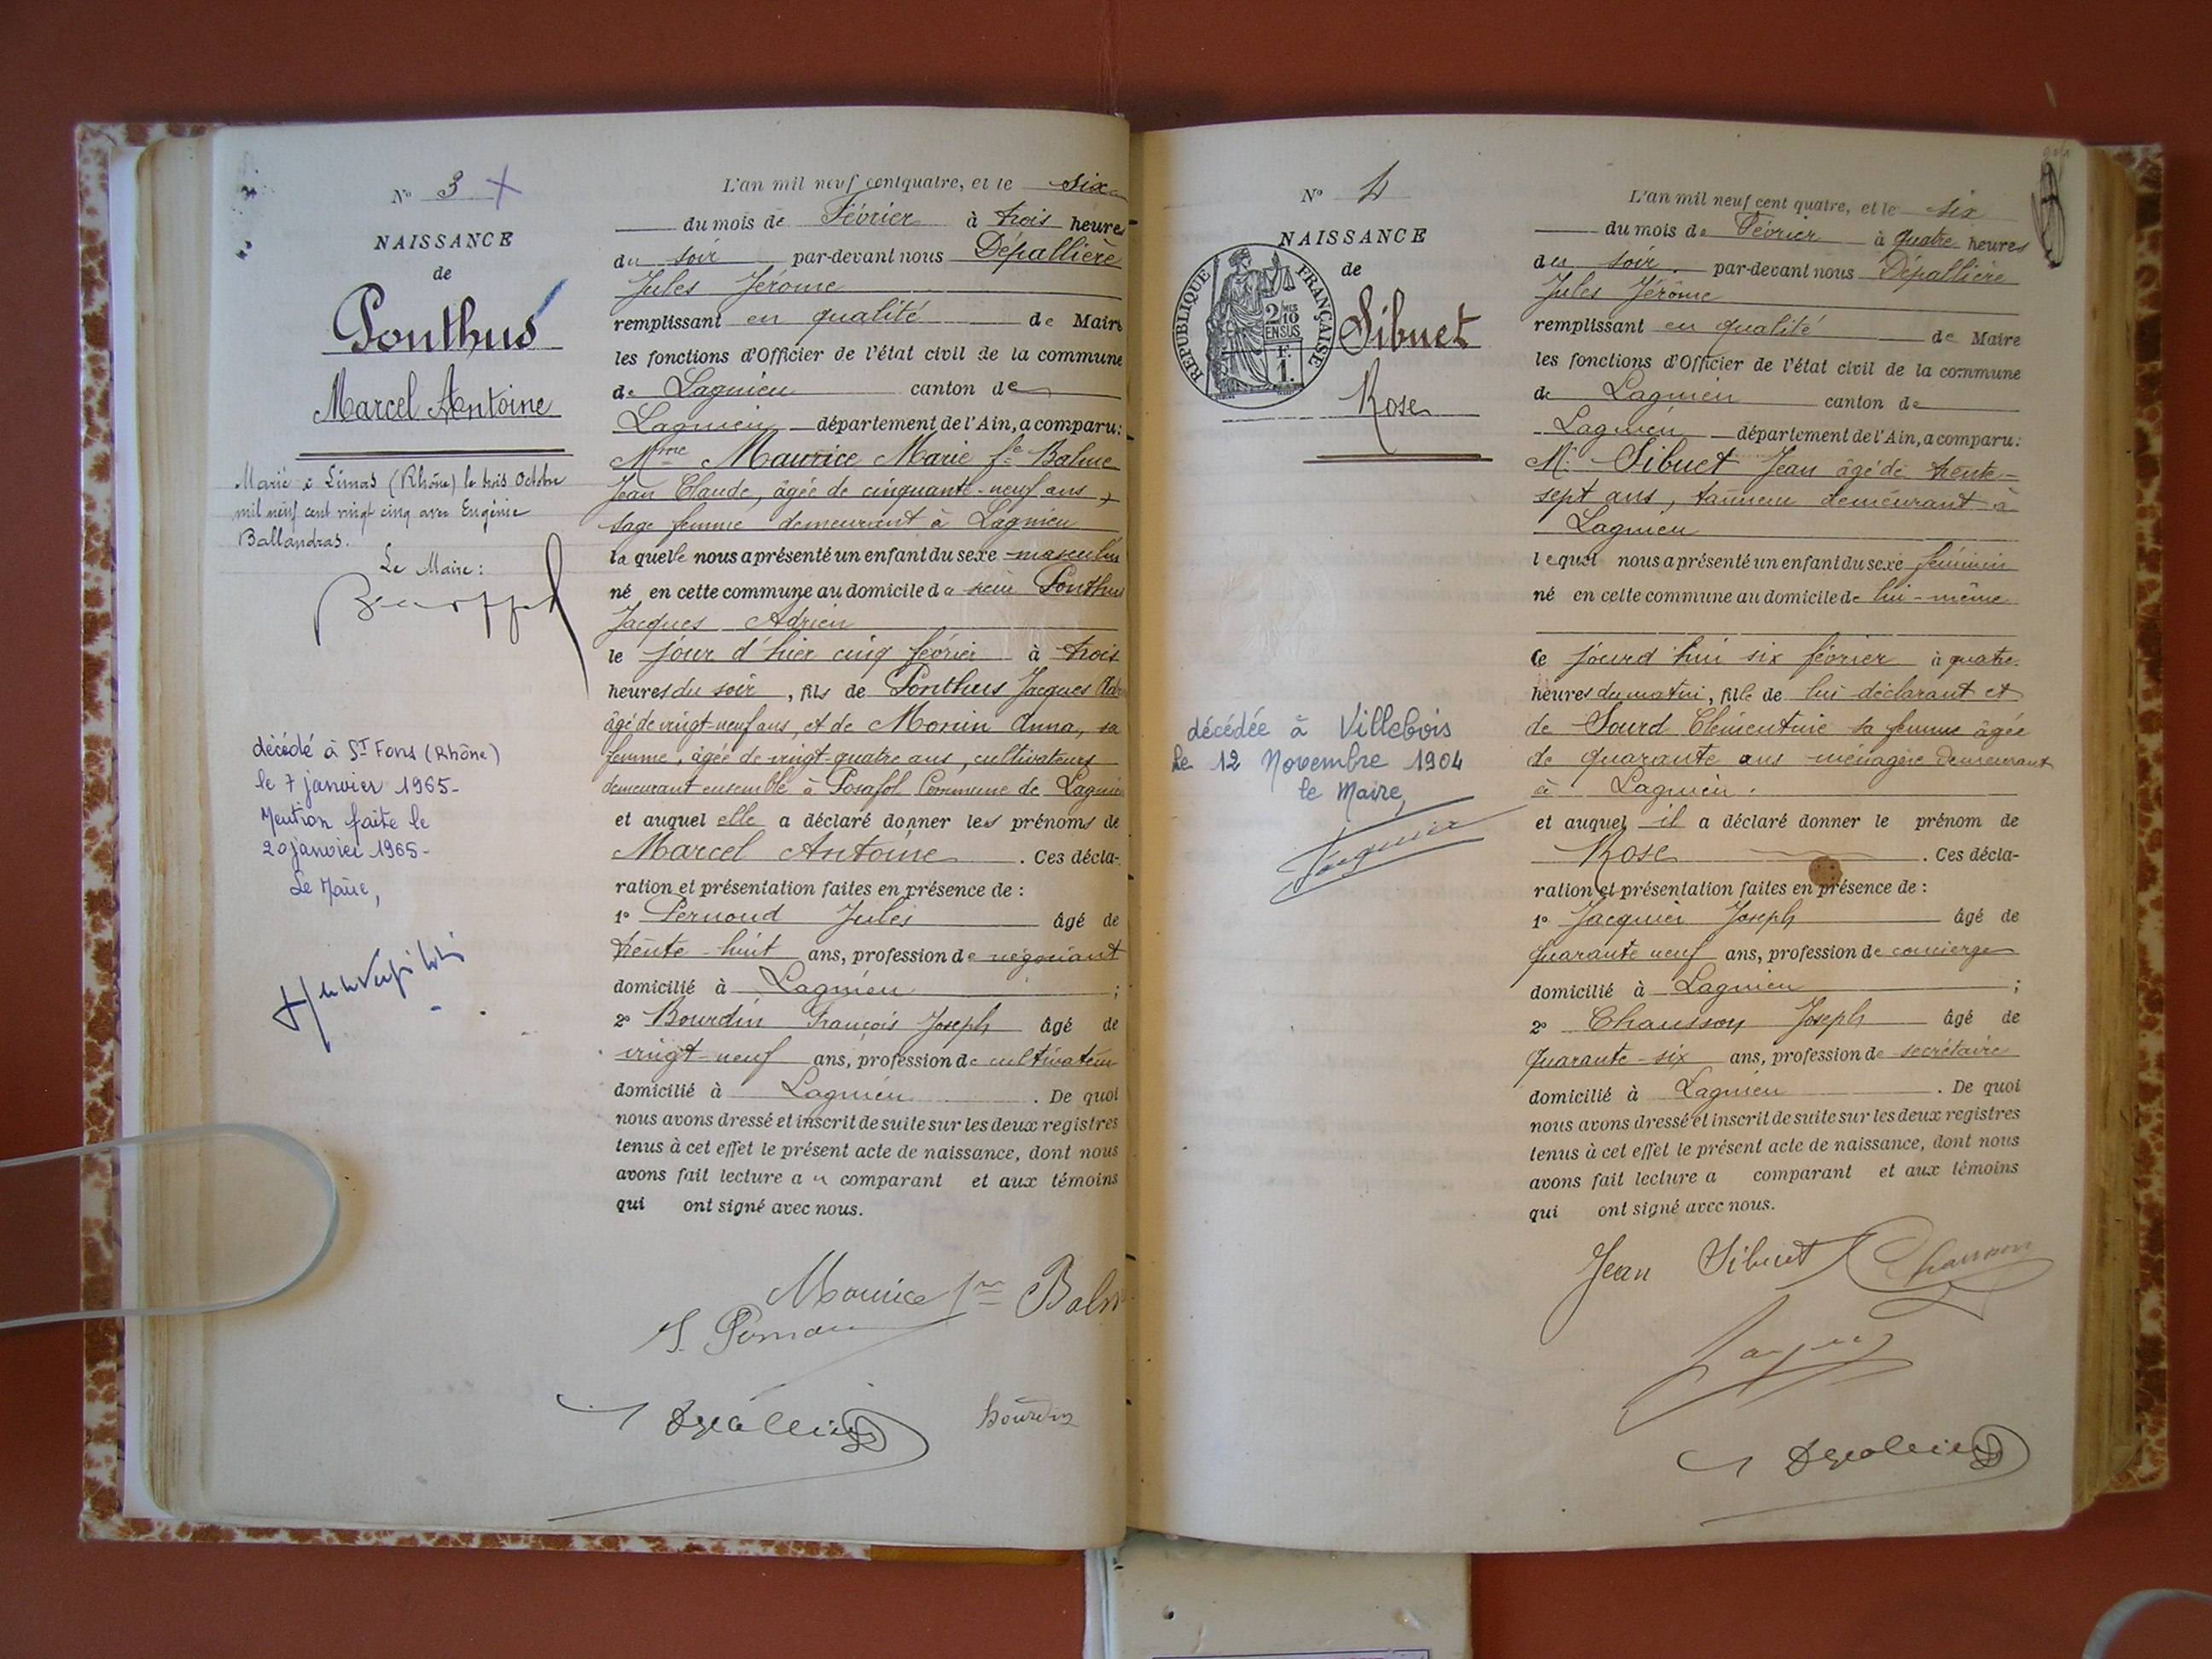 N° 3
NAISSANCE
de
Ponthus
Marcel Antoine
Marié à Limas (Rhône) le trois Octobre
mil neuf cent vingt cinq avec Eugénie
Ballandras.
Le Maire:
décédé à St Fons (Rhône)
le 7 janvier 1965-
Mention faite le
20 janvier 1965-
Le Maire,
L'an mil neuf cent quatre, et le six
du mois de Février à trois heures
du soir par-devant nous Dépallière
Jules Jérôme
remplissant en qualité de Maire
les fonctions d'Officier de l'état civil de la commune
de Lagnieu canton de
Lagnieu département de l'Ain, a comparu:
Mme Maurice Marie fe Balme
Jean Claude, âgée de cinquante-neuf ans,
sage femme demeurant à Lagnieu
la quelle nous a présenté un enfant du sexe masculin
né en cette commune au domicile de sieur Ponthus
Jacques Adrien
le jour d'hier cinq février à trois
heures du soir, fils de Ponthus Jacques Ad
âgé de vingt-neuf ans, et de Monin Anna, sa
femme, âgée de vingt-quatre ans, cultivateurs
demeurant ensemble à Posafol Commune de Lagnieu
et auquel elle a déclaré donner les prénoms de
Marcel Antoine. Ces décla-
ration et présentation faites en présence de:
1° Pernoud Jules âgé de
trente-huit ans, profession de négociant
domicilié à Lagnieu;
2° Bourdin François Joseph âgé de
vingt-neuf ans, profession de cultivateur
domicilié à Lagnieu. De quoi
nous avons dressé et inscrit de suite sur les deux registres
tenus à cet effet le présent acte de naissance, dont nous
avons fait lecture a u comparant et aux témoins
qui ont signé avec nous.
Maurice fme Balm
Bourdin
N° 4
NAISSANCE
de
RÉPUBLIQUE FRANÇAISE
2/10
EN SUS
F.
1.
Sibuet
Rose
décédée à Villebois
le 12 Novembre 1904
le Maire,
L'an mil neuf cent quatre, et le six
du mois de Février à quatre heures
du soir. par-devant nous Dépallière
Jules Jérôme
remplissant en qualité de Maire
les fonctions d'Officier de l'état civil de la commune
de Lagnieu canton de
Lagnieu département de l'Ain, a comparu:
Mr Sibuet Jean âgé de trente-
sept ans, tanneur demeurant à
Lagnieu
lequel nous a présenté un enfant du sexe féminin
né en cette commune au domicile de lui-même
Ce jourd'hui six février à quatre
heures du matin, fille de lui déclarant et
de Sourd Clémentine sa femme âgée
de quarante ans ménagère demeurant
à Lagnieu.
et auquel il a déclaré donner le prénom de
Rose. Ces décla-
ration et présentation faites en présence de:
1° Jacquier Joseph âgé de
quarante neuf ans, profession de concierge
domicilié à Lagnieu;
2° Chausson Joseph âgé de
quarante-six ans, profession de secrétaire
domicilié à Lagnieu. De quoi
nous avons dressé et inscrit de suite sur les deux registres
tenus à cet effet le présent acte de naissance, dont nous
avons fait lecture a comparant et aux témoins
qui ont signé avec nous.
Jean Sibuet Chausson